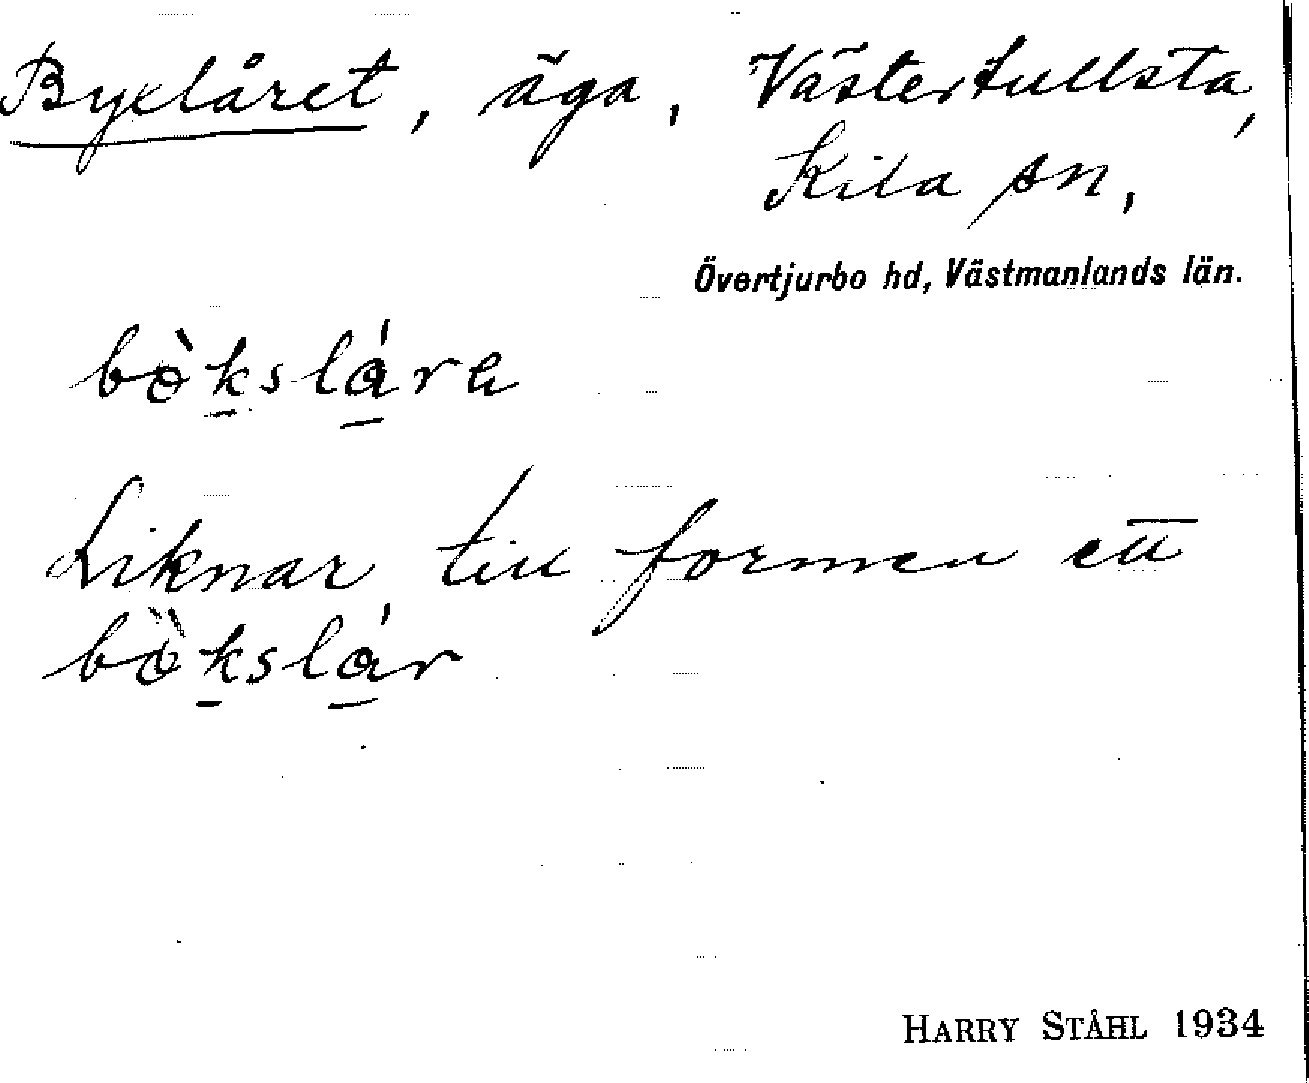 Byxlåret, äga, Västerfullsta,
Kila sn,
Övertjurbo hd, Västmanlands län.
bò̈kslára
Liknar till formen ett
bò̈kslár
HARRY STÅHL 1934